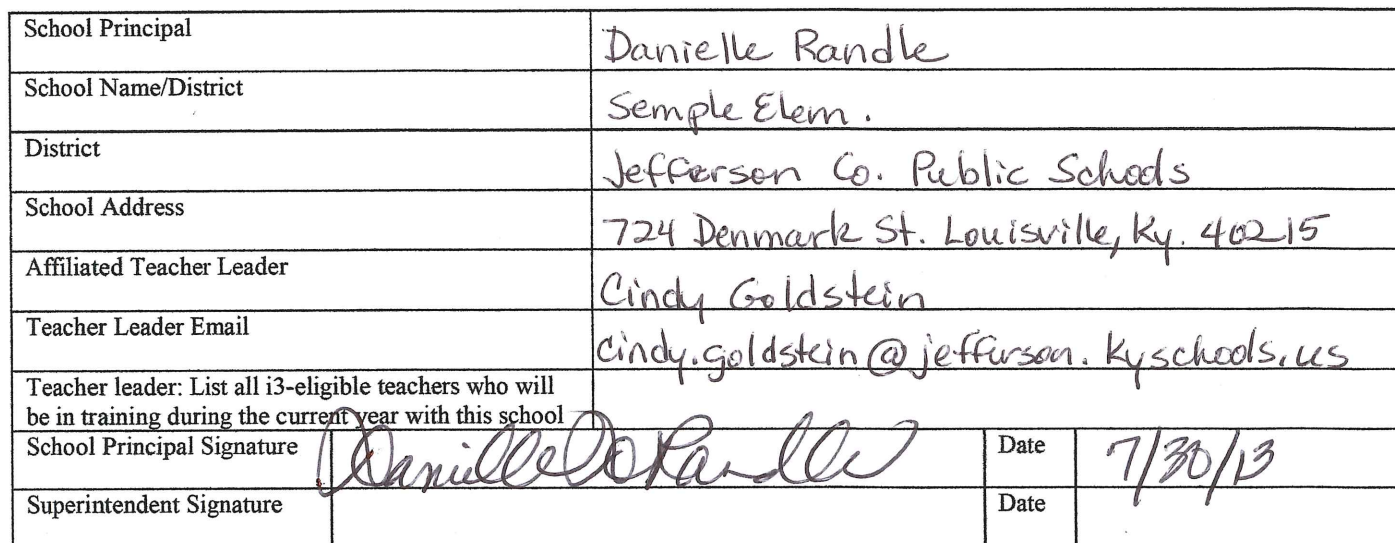 School Principal Danielle Randle
School Name/District Semple Elem.
District Jefferson Co. Public Schools
School Address 724 Denmark St. Louisville, Ky. 40215
Affiliated Teacher Leader Cindy Goldstein
Teacher Leader Email cindy.goldstein@jefferson.kyschools.us
Teacher leader: List all i3-eligible teachers who will
be in training during the current year with this school
School Principal Signature Danielle Randle Date 7/30/13
Superintendent Signature Date